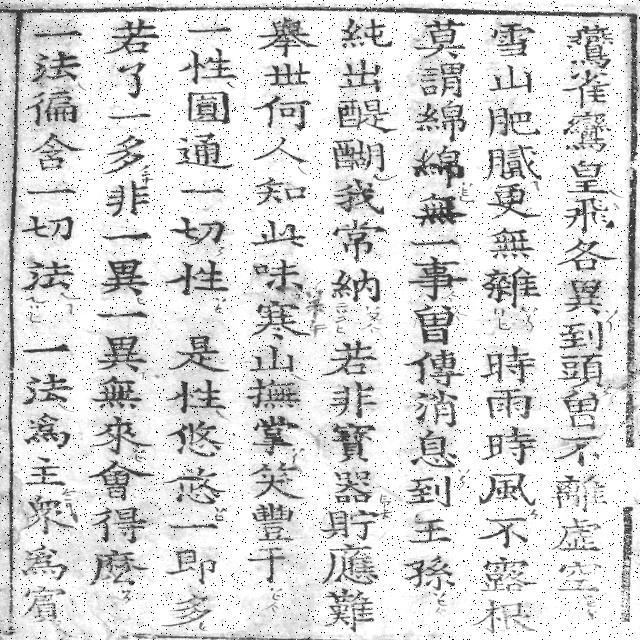 鷰雀鸞皇飛各異到頭曽不離虛空
雪山肥膩更無雜時雨時風不露根
莫謂綿綿無一事曽傳消息到王孫
純出醍醐我常納若非寶器貯應難
舉世何人知此味寒山撫掌笑豐干
一性圓通一切性是性悠悠一即多
若了一多非一異一異無來會得麽
一法徧含一切法一法爲主衆爲賓